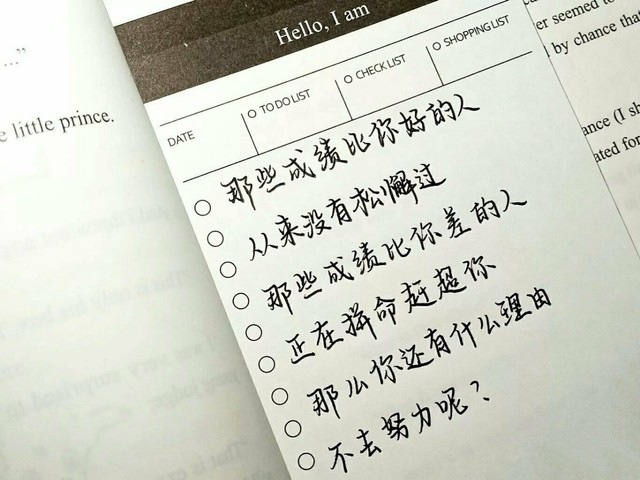 ..."
e little prince.
Hello, I am
DATE
TO DO LIST
CHECK LIST
SHOPPING LIST
那些成绩比你好的人
从来没有松懈过
那些成绩比你差的人
正在拼命赶超你
那么你还有什么理由
不去努力呢?
er seemed to
by chance that
ance (I sh
ated for